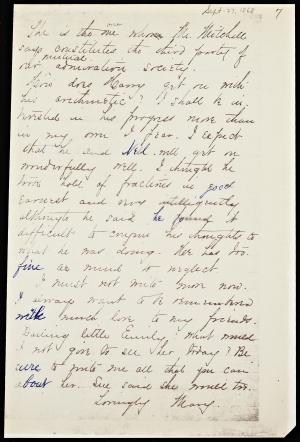 Sept. 27, 1868
7
She is the one whom Mr. Mitchell
says constitutes the third party of
our mutual admiration society.
How does Harry get on with
his arithmetic? I shall be in-
terested in his progress more than
in my own I fear. I expect
that he and Nel. will get on
wonderfully well. I thought he
took hold of fractions in good
earnest and very intelligently
although he said he found it
difficult to confine his thoughts to
what he was doing. He has too
fine a mind to neglect.
I must not write more now.
I always want to be remembered
with much love to my friends.
Darling little Emily! What would
I not give to see her today! Be
sure to write me all that you can
about her. Sue said she would too.
Lovingly Mary.